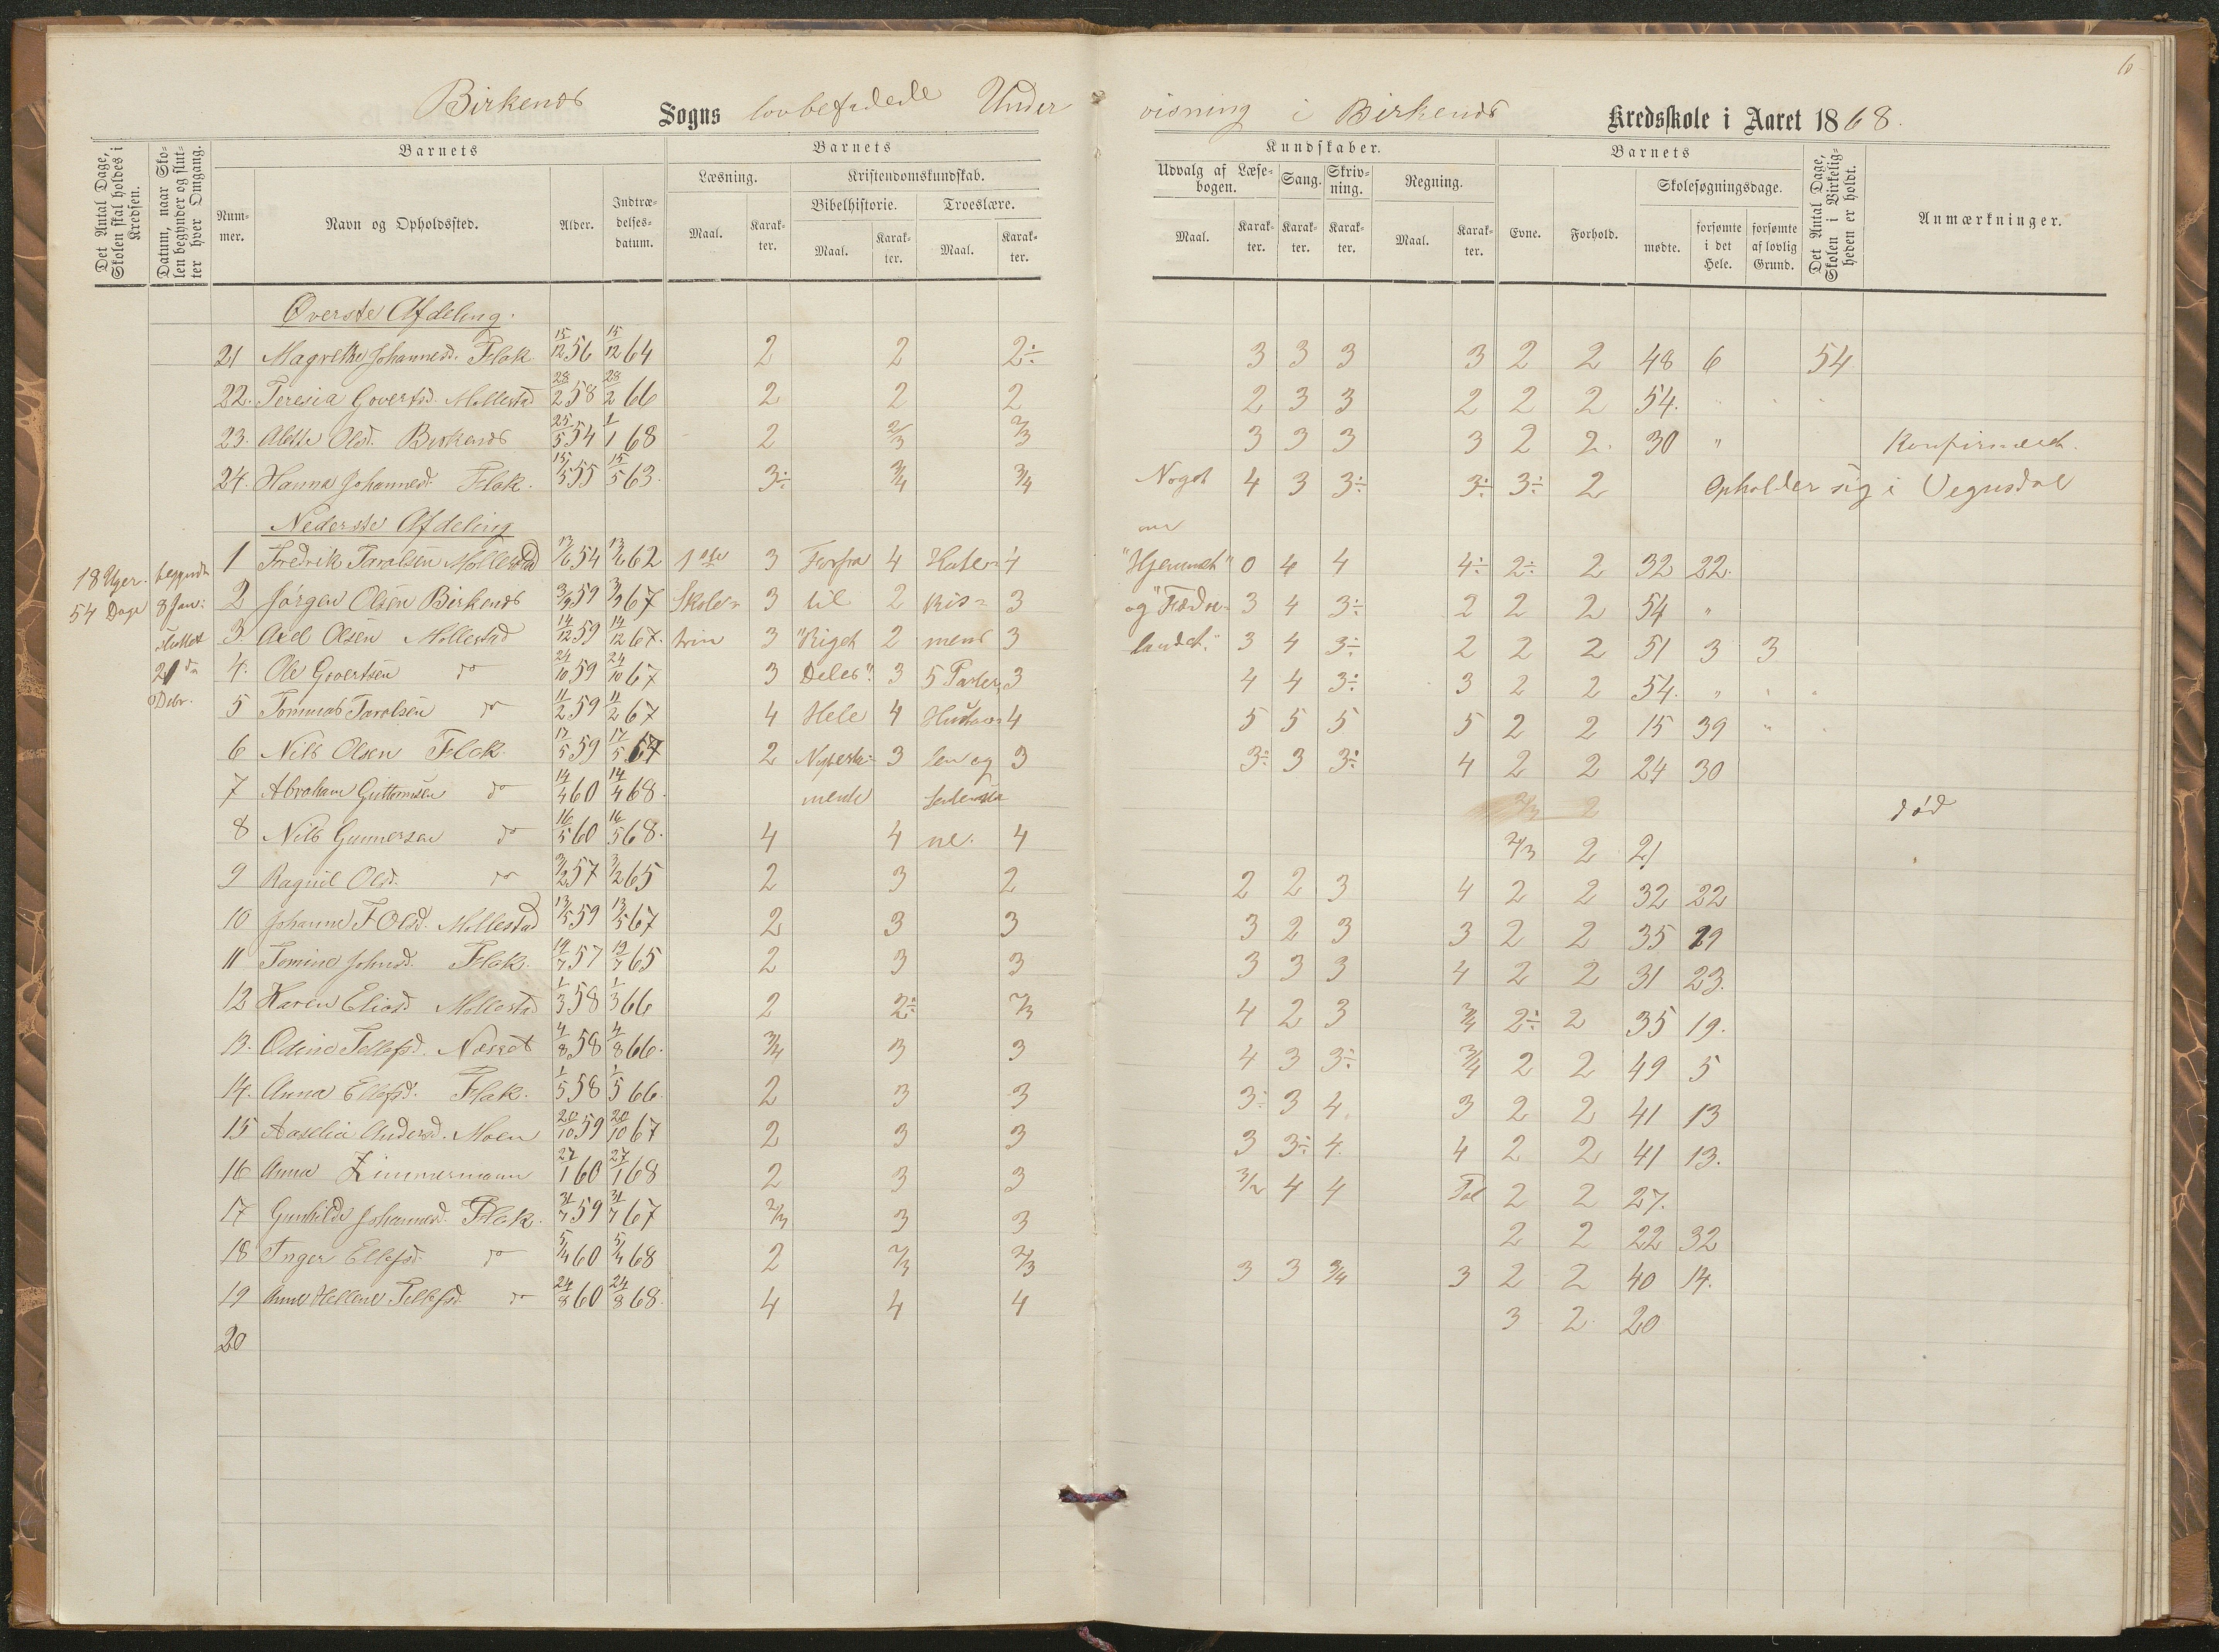 6
Birkenes Sogns lovbefalede Undervisning i Birkenes Kredsskole i Aaret 1868.
Det Antal Dage, Skolen skal holdes i Kredsen.
Datum, naar Skolen begynder og slutter hver Omgang.
Barnets
Nummer.
Navn og Opholdssted.
Alder.
Indtrædelsesdatum.
Barnets
Læsning.
Maal.
Karakter.
Kristendomskundskab.
Bibelhistorie.
Maal.
Karakter.
Troeslære.
Maal.
Karakter.
Kundskaber.
Udvalg af Læsebogen.
Maal.
Karakter.
Sang.
Karakter.
Skrivning.
Karakter.
Regning.
Maal.
Karakter.
Barnets
Evne.
Forhold.
Skolesøgningsdage.
mødte.
forsømte i det Hele.
forsømte af lovlig Grund.
Det Antal Dage, Skolen i Virkeligheden er holdt.
Anmærkninger.
Øverste Afdeling.
21 Magrethe Johannesd. Flak 15/12 56 15/12 64 2 2 2÷ 3 3 3 3 2 2 48 6 54
22. Teresia Govertsd. Mollestad 28/2 58 28/2 66 2 2 2 2 3 3 2 2 2 54.
23. Alette Olsd. Birkenes 25/5 54 1/1 68 2 2/3 2/3 3 3 3 3 2 2 30 " Konfirmeret.
24. Hanna Johannesd. Flak. 15/5 55 15/5 63. 3÷ 3/4 3/4 Noget 4 3 3÷ 3÷ 3÷ 2 Opholder sig i Vegusdal
Nederste Afdeling om
18 Uger. begyndte 1 Fredrik Taralsen Mollestad 13/6 54 13/6 62 1ste 3 Forfra 4 Huteri 4 "Hjemmet" 0 4 4 4÷ 2÷ 2 32 22.
54 Dage 8 Jan: 2 Jørgen Olsen Birkenes 3/9 59 3/9 67 Skole- 3 til 2 Kis- 3 og "Fædre- 3 4 3÷ 2 2 2 54 "
sluttet 3. Axel Olsen Mollestad 14/12 59 14/12 67. trin 3 "Riget 2 mens 3 landet." 3 4 3÷ 2 2 2 51 3 3
21de 4. Ole Govertsen do 24/10 59 24/10 67 3 Deles". 3 5 Parter 3 4 4 3÷ 3 2 2 54. "
Debr. 5 Tommas Taralsen do 11/2 59 11/2 67 4 Hele 4 4 5 5 5 5 2 2 15 39
6 Nils Olsen Flak. 17/5 59 17/5 67 2 Nytesta- 3 len og 3 3÷ 3 3÷ 4 2 2 24 30
7 Abraham Guttormsen do 14/4 60 14/4 68. mente 2/3 2 død
8 Nils Gunnersen do 16/5 60 16/5 68. 4 4 ne. 4 2/3 2 21
9 Ragnil Olsd. do 3/2 57 3/2 65 2 3 2 2 2 3 4 2 2 32 22
10 Johanne F Olsd. Mollestad 13/5 59 13/5 67 2 3 3 3 2 3 3 2 2 35 19
11 Tomine Johnsd. Flak. 19/7 57 19/7 65 2 3 3 3 3 3 4 2 2 31 23.
12 Karen Eliasd. Mollestad 1/3 58 1/3 66 2 2÷ 2/3 4 2 3 3/4 2÷ 2 35 19.
13. Odine Tellefsd. Næset 4/8 58 4/8 66. 3/4 3 3 4 3 3÷ 3/4 2 2 49 5
14. Anna Ellefsd. Flak. 1/5 58 1/5 66. 2 3 3 3÷ 3 4. 3 2 2 41 13
15 Aaselia Andersd. Moen 20/10 59 20/10 67 2 3 3 3 3÷ 4. 4 2 2 41 13.
16 Anna Zimmermann 27/1 60 27/1 68 2 3 3 3/2 4 4 Tal 2 2 27.
17 Gunhilde Johannesd. Flak. 31/7 59 31/7 67 2/3 3 3 2 2 22 32
18 Inger Ellefsd. do 5/4 60 5/4 68 2 2/3 2/3 3 3 3/4 3 2 2 40 14.
19 Anne Hellene Tellefsd. do 24/8 60 24/8 68. 4 4 4 3 2 20
20